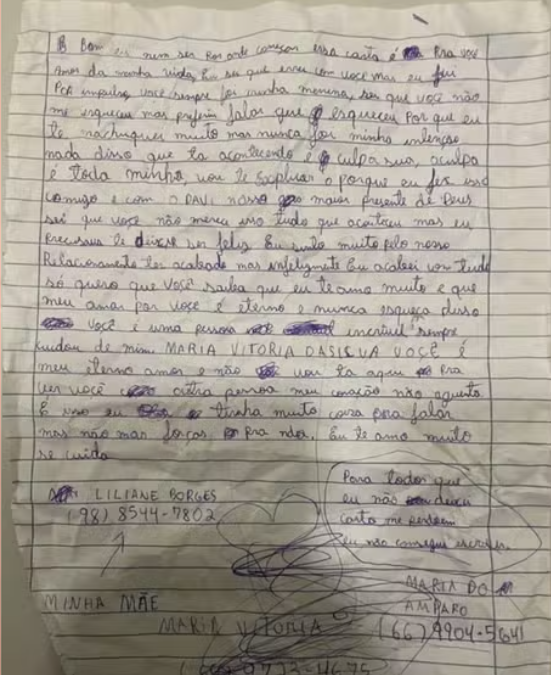 Bom eu nem sei por onde começar essa carta é pra você
Amor da minha vida, Eu sei que errei com você mas eu fui
Por impulso, você sempre foi minha menina, sei que você não
me esqueceu mas preferiu falar que esqueceu Por que eu
te machuquei muito mas nunca foi minha intenção
nada disso que ta acontecendo é culpa sua, a culpa
é toda minha, vou te explicar o porque eu fiz isso
comigo e com o DAVI nosso maior presente de Deus
sei que você não merece isso tudo que aconteceu mas eu
precisava te deixar ser feliz Eu sinto muito pelo nosso
Relacionamento ter acabado mas infelizmente Eu acabei com tudo
só quero que você saiba que eu te amo muito e que
meu amor por você é eterno e nunca esqueça disso
você é uma pessoa incrível sempre
cuidou de mim MARIA VITORIA DASILVA VOCÊ É
meu eterno amor e não vou ta aqui pra
ver você outra pessoa meu coração não aguenta
É isso eu tinha muito coisa pra falar
mas não mas forças pra nda. Eu te amo muito
se cuida
Para todos que
eu não deixei
carta me perdoem
eu não consegui escrever.
LILIANE BORGES
(98) 8544-7802
MINHA MÃE
MARIA DO
AMPARO
MARIA VITORIA
(66) 9904-5641